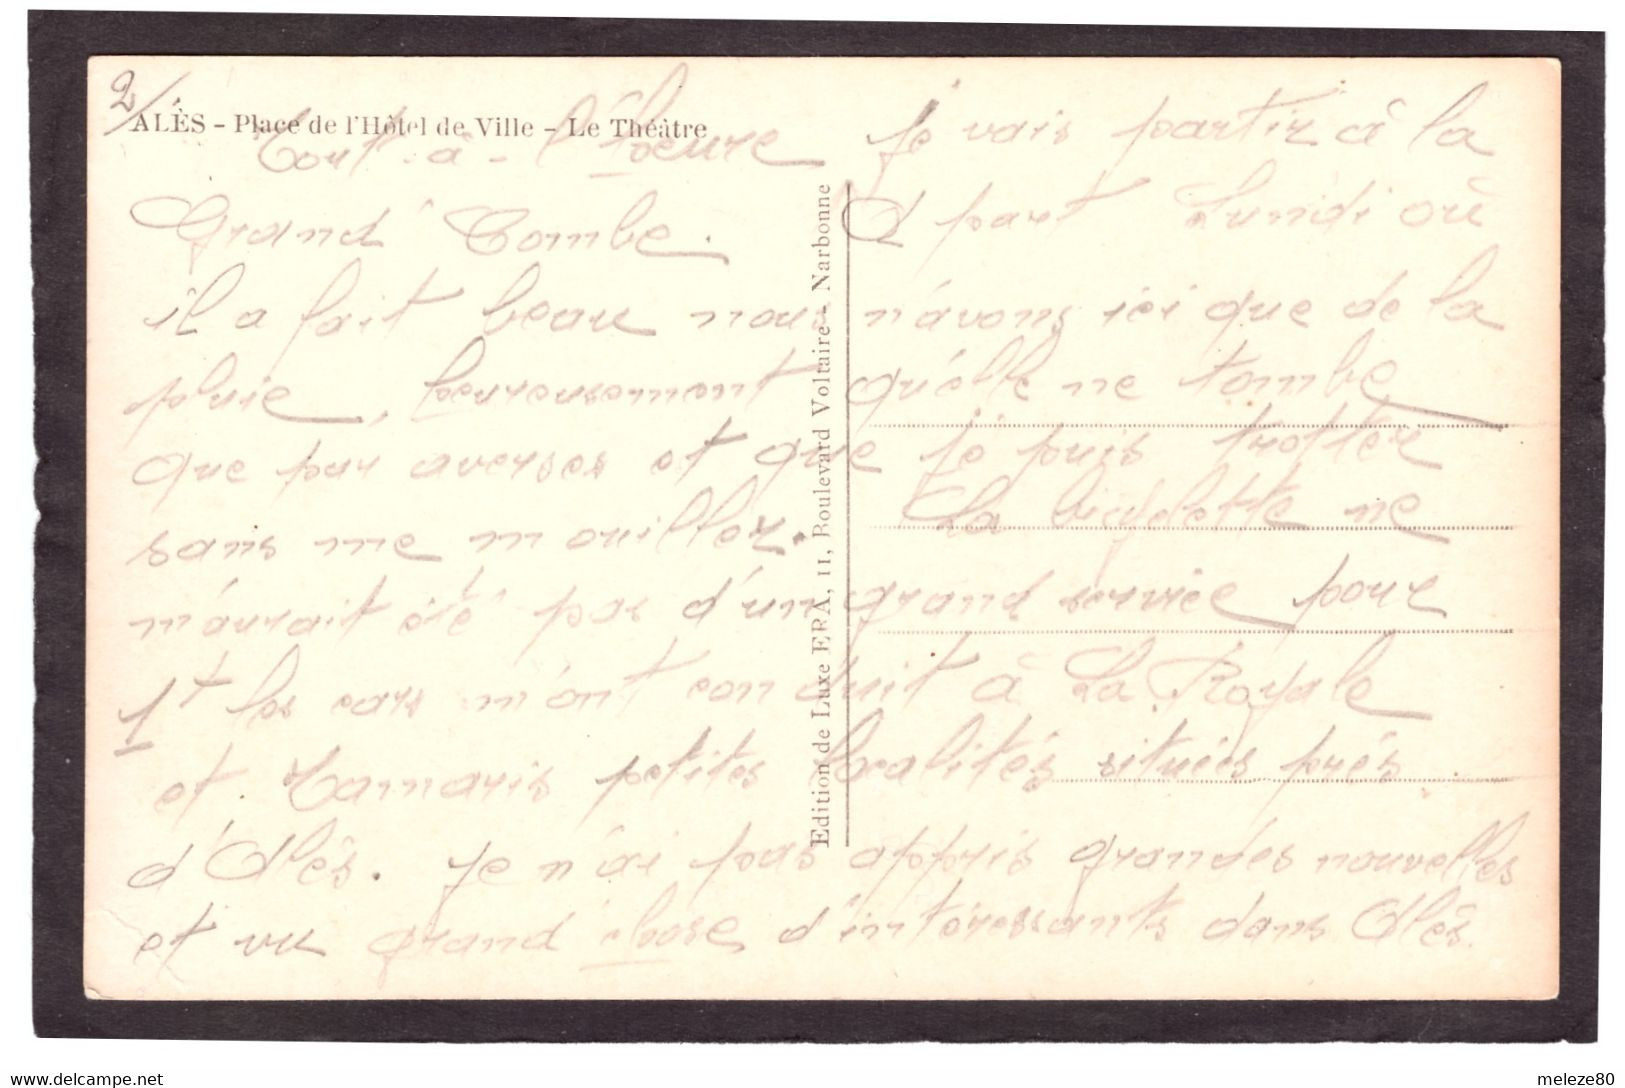 2/
ALÈS - Place de l'Hôtel de Ville - Le Théâtre
Tout-à-l'heure je vais partir à la
Grand' Combe. A part Lundi où
il a fait beau nous n'avons ici que de la
pluie, heureusement qu'elle ne tombe
que par averses et que je puis trotter
sans me mouiller. La bicyclette ne
m'aurait été pas d'un grand service pour
1t les cars m'ont conduit à La Royale
et Tamaris petites localités situées près
d'Alès. Je n'ai pas appris grandes nouvelles
et vu grand chose d'intéressants dans Alès.
Edition de Luxe ERA, 11, Boulevard Voltaire - Narbonne
www.delcampe.net
meleze80